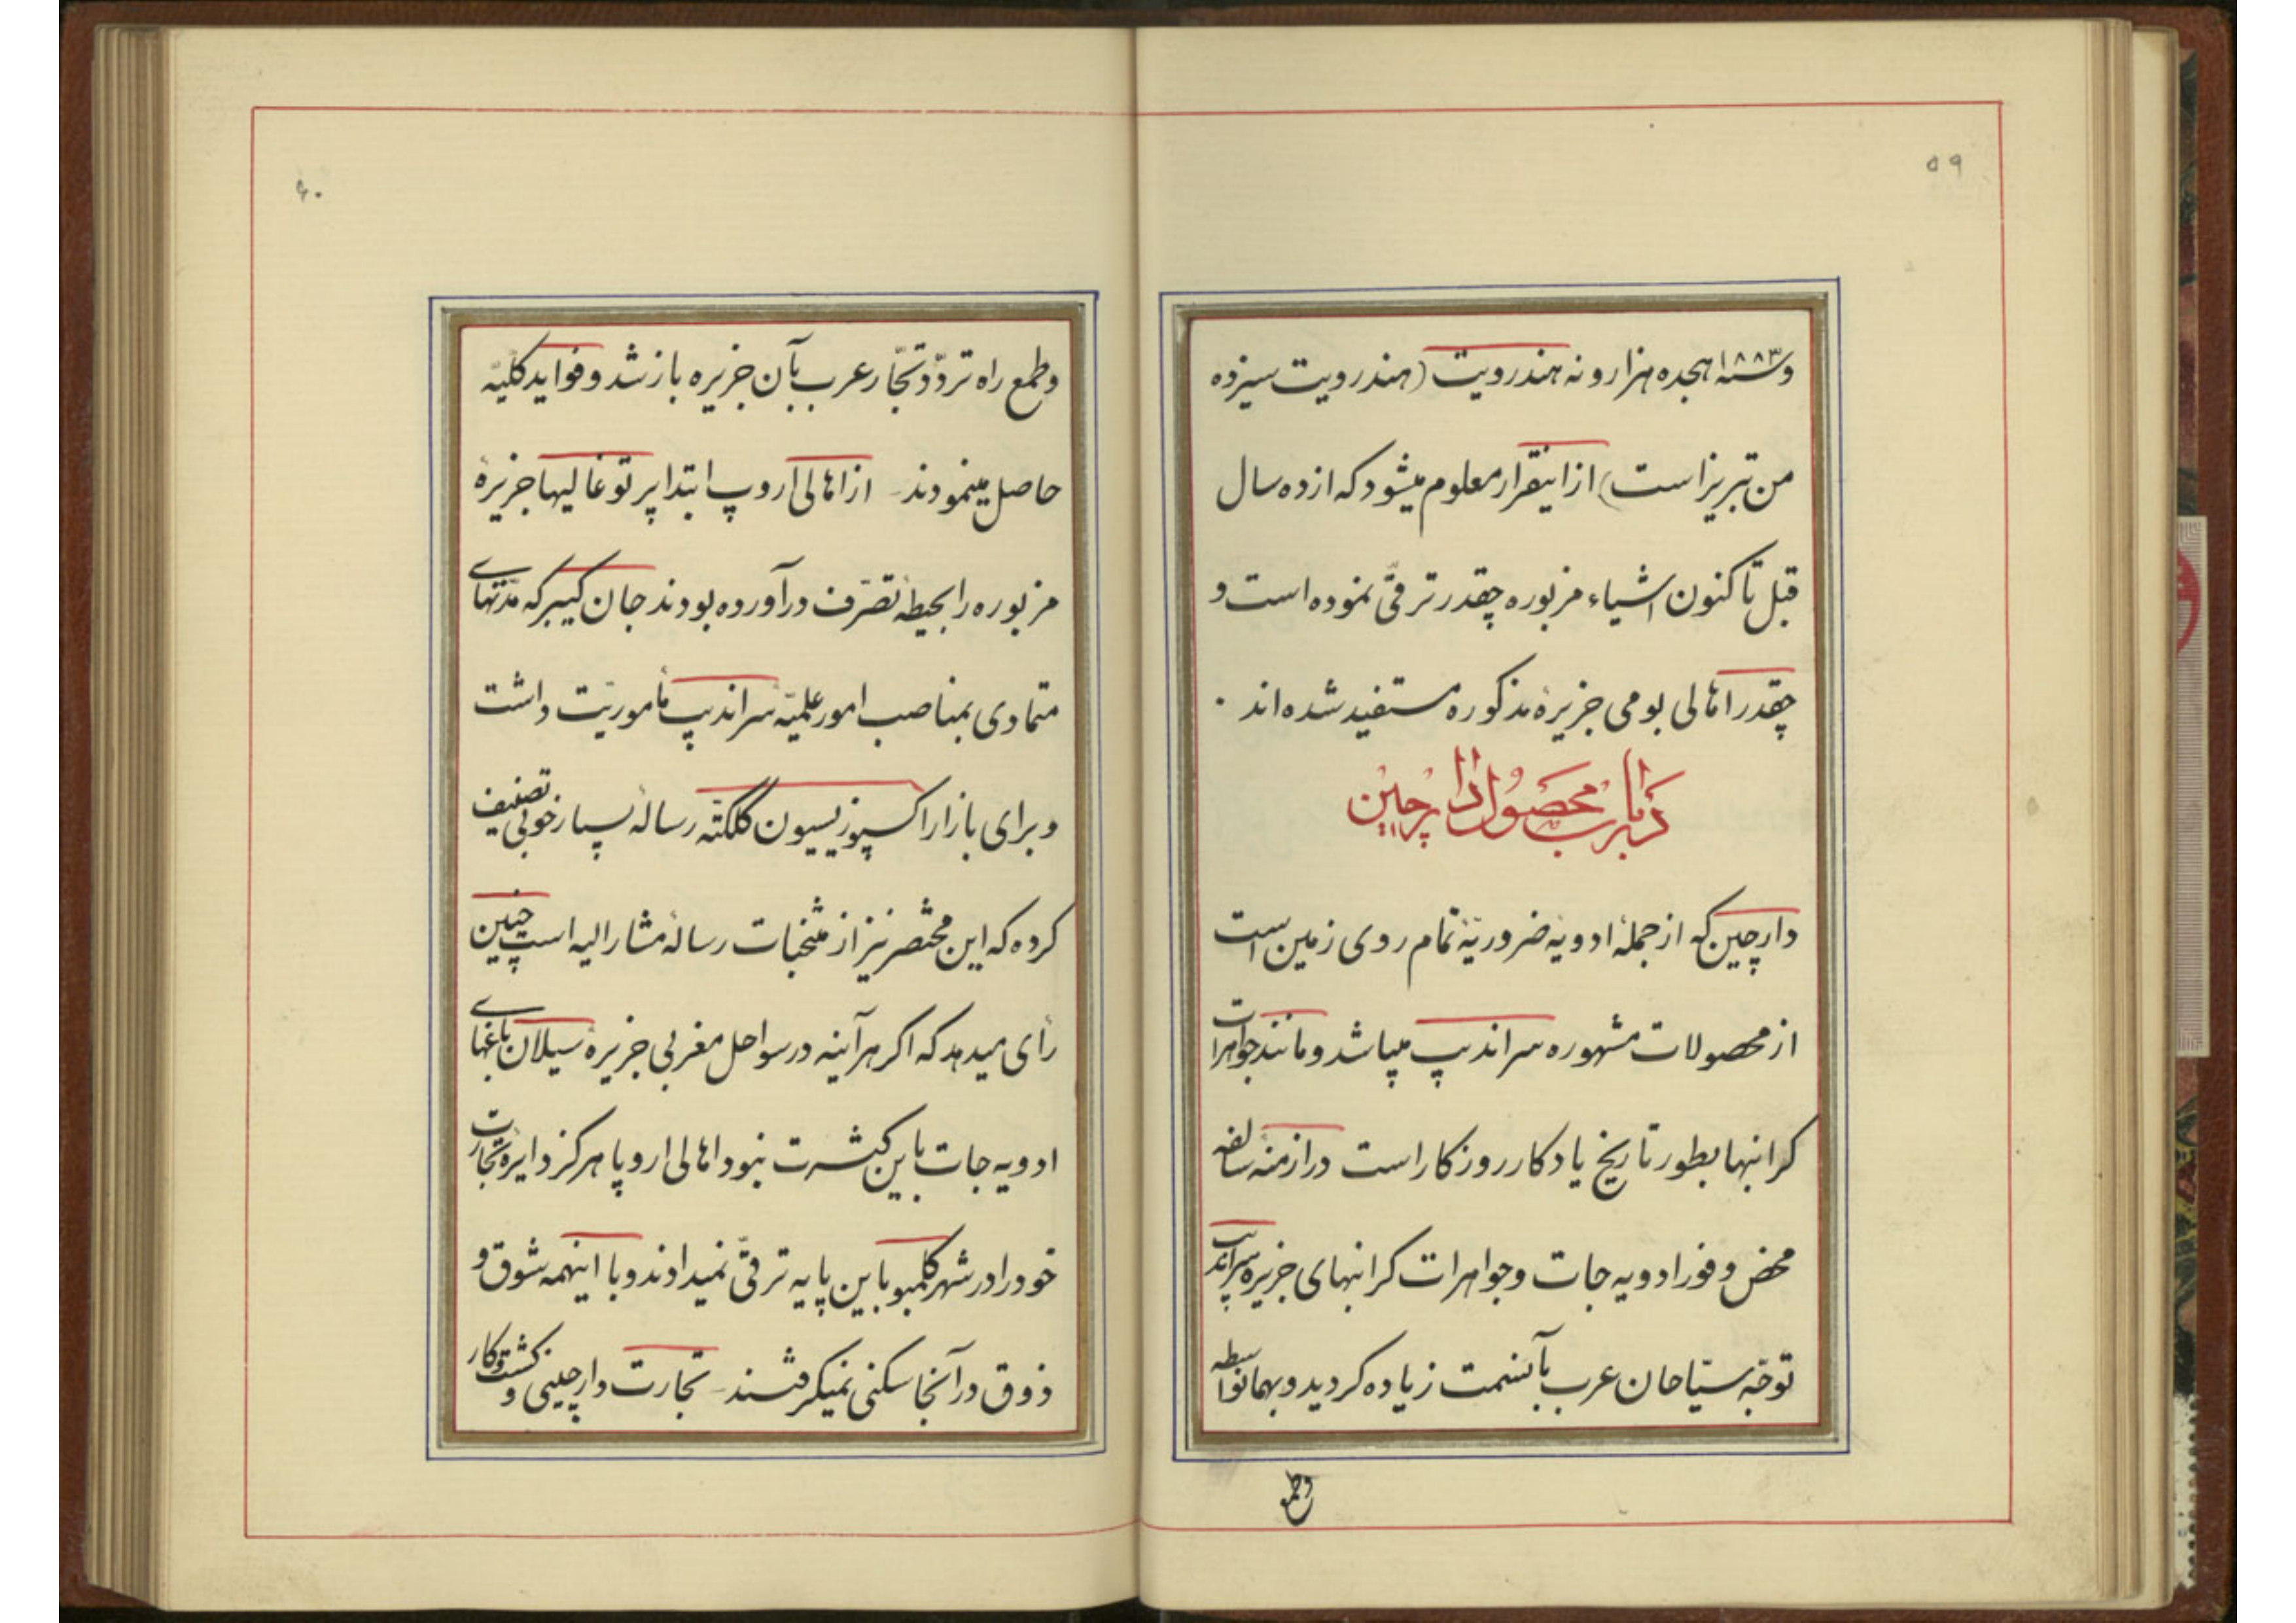 ۵۹
و سنه ۱۸۸۳ هجده هزار و نه هندرویت (هندرویت سیزده
من تبریز است) از اینقرار معلوم میشود که از ده سال
قبل تا کنون اشیاء مزبوره چقدر ترقّی نموده است و
چقدر اهالی بومی جزیرهٔ مذکوره مستفید شده اند ۰
در باب محصول دارچین
دارچین که از جملهٔ ادویهٔ ضروریّهٔ تمام روی زمین است
از محصولات مشهوره سراندیپ میباشد و مانند جواهرات
کرانبها بطور تاریخ یادکار روزکار است در ازمنهٔ سالفه
محض وفور ادویه جات و جواهرات کرانبهای جزیره سراندیپ
توجّه سیّاحان عرب بآنسمت زیاده کردید و بهمانواسطه
وطمع
۶۰
و طمع راه تردّد تجّار عرب بآن جزیره باز شد و فواید کلیّه
حاصل مینمودند - از اهالی اروپ ابتدا پرتوغالیها جزیرهٔ
مزبوره را بحیطهٔ تصرّف در آورده بودند جان کیبر که مدّتهای
متمادی بمناصب امور علمیّه سراندیپ مأموریّت داشت
و برای بازار اکسپوزیسیون کلکتّه رسالهٔ بسیار خوبی تصنیف
کرده که این مختصر نیز از منتخبات رسالهٔ مشارالیه است چنین
رأی میدهد که اکر هر آینه در سواحل مغربی جزیرهٔ سیلان باغهای
ادویه جات باین کثرت نبود اهالی اروپا هرکز دایرهٔ تجارت
خود را در شهر کلمبو باین پایه ترقّی نمیدادند و با اینهمه شوق و
ذوق در آنجا سکنی نمیکرفتند - تجارت دارچینی و کشت و کار